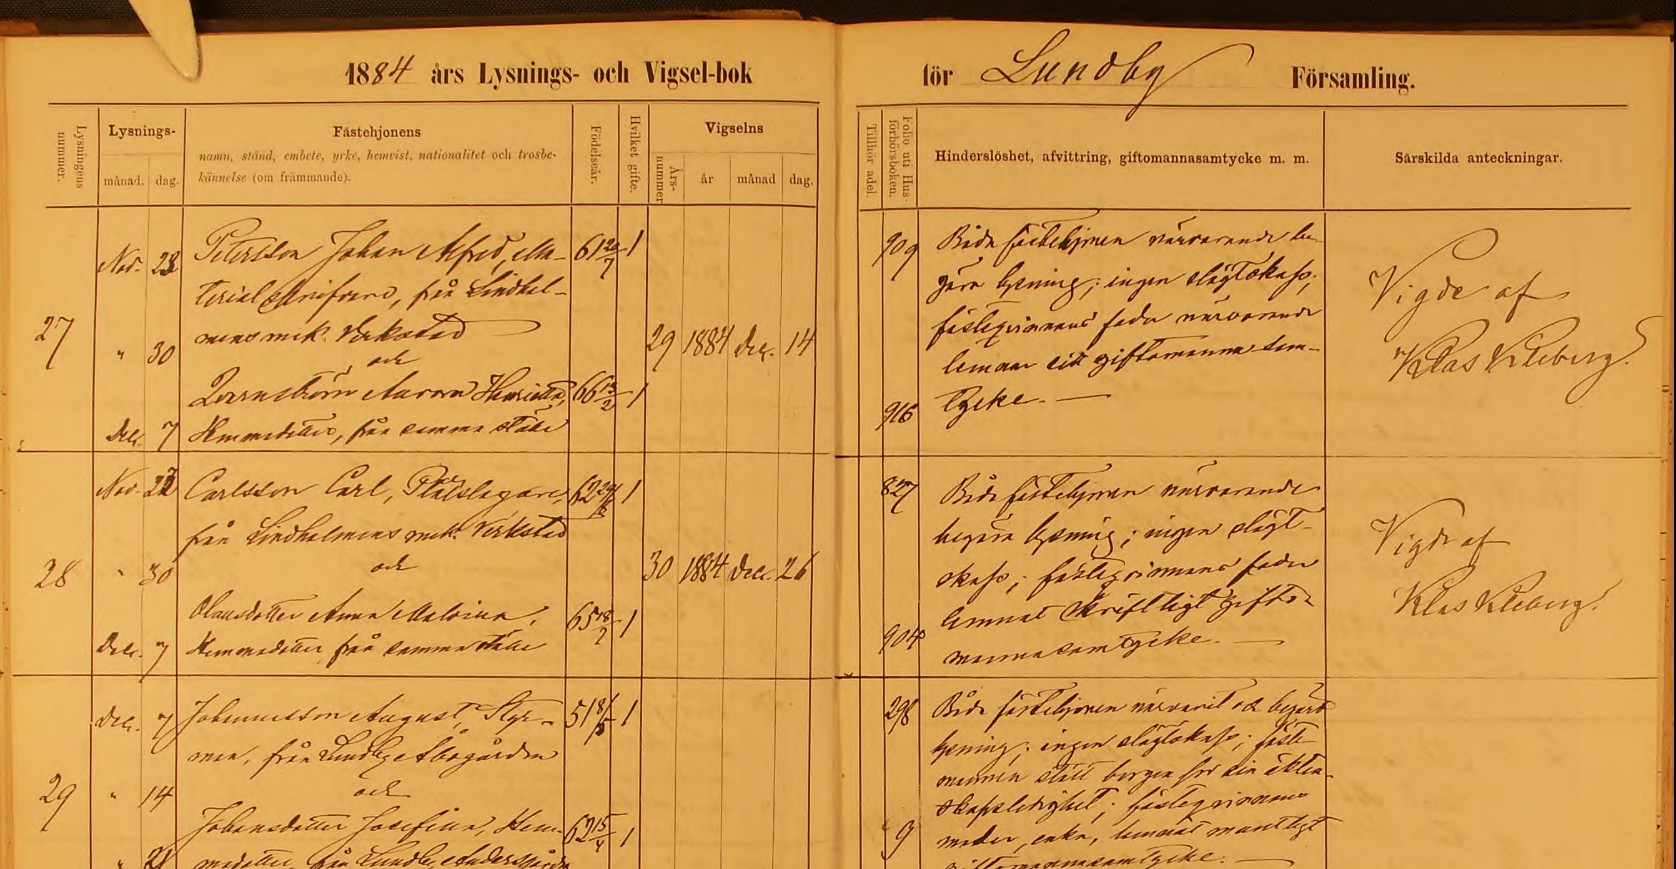 1884 års Lysnings- och Vigsel-bok
för Lundby Församling.
Lysningens nummer.
Lysnings-
månad. dag.
Fästehjonens
namn, stånd, embete, yrke, hemvist, nationalitet och trosbe-
kännelse (om främmande).
Födelseår.
Hvilket gifte.
Vigselns
Års-nummer
år månad dag.
Tillhör adel.
Folio uti Hus-förhörsboken.
Hinderslöshet, afvittring, giftomannasamtycke m. m.
Särskilda anteckningar.
27
Nov. 23
" 30
Dec. 7
Petersson Johan Alfred, Ma-
terialskrifvare, från Lindhol-
mens mek. Verkstad
och
Aurora Henrietta,
Hemmadotter, från samma ställe
61 20/7 1
66 13/2 1
29 1884 Dec. 14
909
916
Båda fästehjonen närvarande be-
gära lysning; ingen slägtskap;
fästeqvinnans fader närvarande
lemnar sitt giftomanna sam-
tycke. —
Vigde af
Klas Kleberg.
28
Nov. 23
" 30
Dec. 7
Carlsson Carl, Plåtslagare,
från Lindholmens mek. Verkstad
och
Olausdotter Anna Malvina,
Hemmadotter från samma ställe
62 1
65 18/2 1
30 1884 Dec. 26
827
904
Båda fästehjonen närvarande
begära lysning; ingen slägt-
skap; fästeqvinnans fader
lemnat skriftligt gifto-
mannasamtycke. —
Vigde af
Klas Kleberg.
29
Dec. 7
" 14
" 21
Johannesson August, Styr-
man, från Lundby Åbogården
och
Johansdotter Josefina, Hem-
madotter, från Lundby Andersgården
51 8/5 1
62 15/4 1
298
9
Båda fästehjonen närvarit och begärt
lysning; ingen slägtskap; fäste-
mannen ställt borgen för sin äkten-
skapsledighet; fästeqvinnans
moder, enka, lemnat muntligt
giftomannasamtycke. —